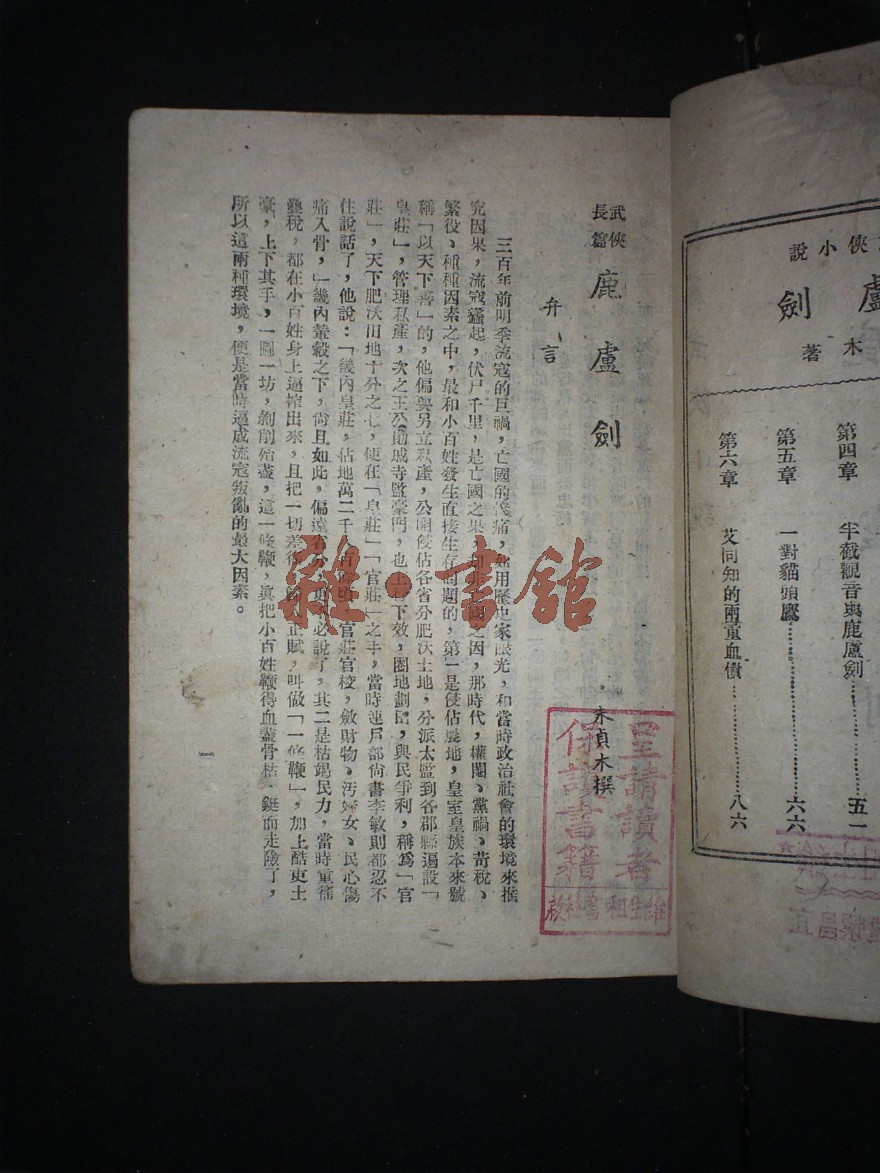 俠小說
盧劍
木著
第四章 半截觀音與鹿盧劍 五一
第五章 一對貓頭鷹 六六
第六章 艾同知的兩重血債 八六
武俠長篇
鹿盧劍
朱貞木撰
弁言
三百年前明季流寇的巨禍，亡國的慘痛，如用歷史家眼光，和當時政治社會的環境來推
究因果，流寇蠭起，伏尸千里，是亡國之果，却非亡國之因，那時代，權閹、黨禍、苛稅、
繁役、種種因素之中，最和小百姓發生直接生存問題的，第一是侵佔農地，皇室皇族本來號
稱「以天下養」的，他偏要另立私產，公開侵佔各省分肥沃土地，分派太監到各郡縣遍設「
皇莊」，管理私產，次之王公勛戚寺監豪門，也上行下效，圈地劃區，與民爭利，稱為「官
莊」，天下肥沃田地十分之七，便在「皇莊」「官莊」之手，當時連戶部尚書李敏則都忍不
住說話了，他說：「畿內皇莊，佔地萬二千八百餘頃，官莊官校，斂財物、汚婦女、民心傷
痛入骨，」畿內輦轂之下，尚且如此，偏遠省分，更不必說了，其二是枯竭民力，當時重徭
疊稅，都在小百姓身上逼榨出來，且把一切差徭，歸入正賦，叫做「一條鞭」，加上酷吏土
豪，上下其手，一圖一坊，剝削殆盡，這一條鞭，眞把小百姓鞭得血盡骨枯，鋌而走險了，
所以這兩種環境，便是當時逼成流寇叛亂的最大因素。
一
雜·書館
呈請讀者
保護書籍
租書社啟